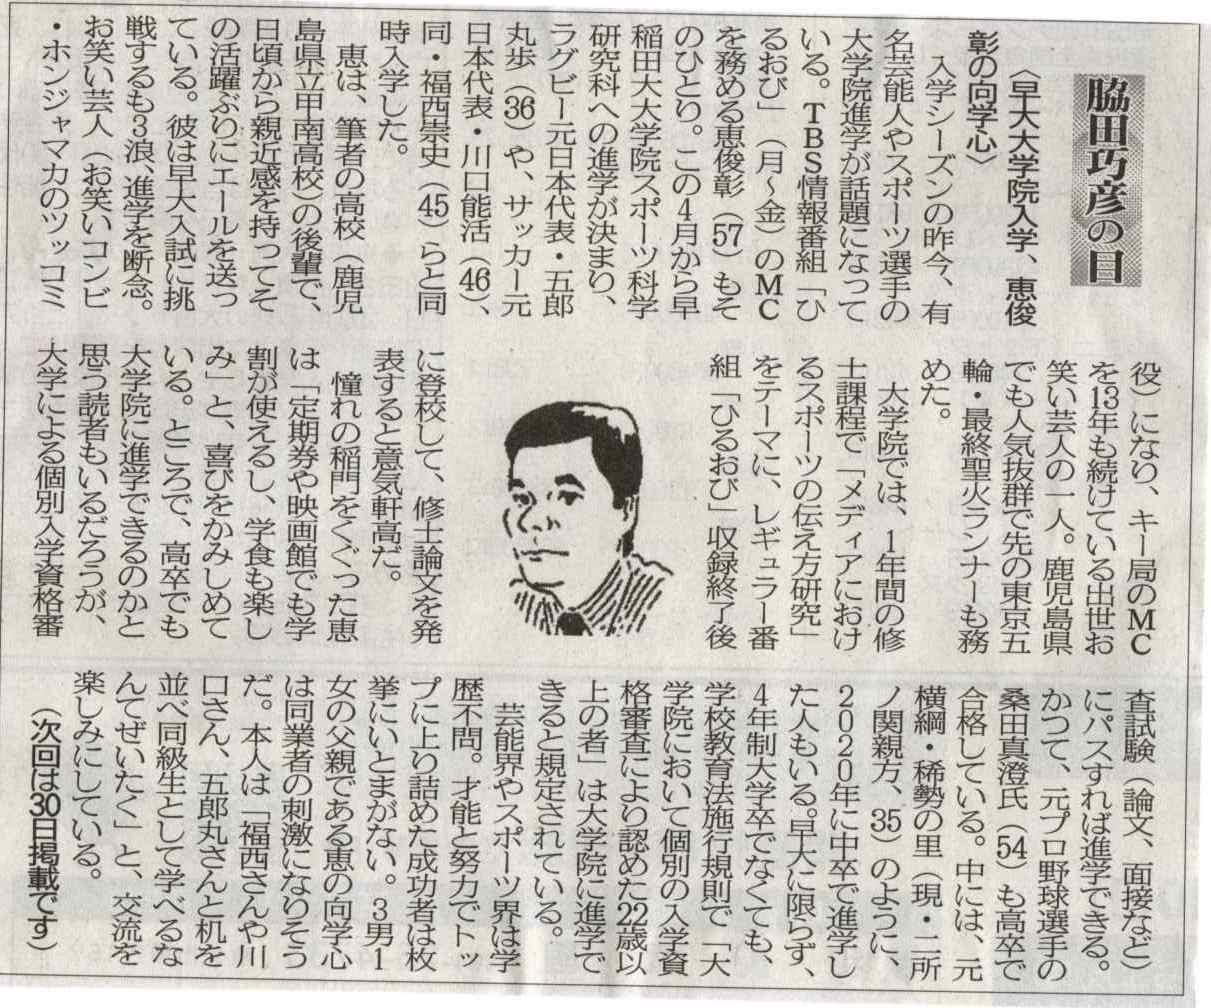 脇田巧彦の目
〈早大大学院入学、恵俊
彰の向学心〉
入学シーズンの昨今、有
名芸能人やスポーツ選手の
大学院進学が話題になって
いる。TBS情報番組「ひ
るおび」（月～金）のMC
を務める恵俊彰（57）もそ
のひとり。この4月から早
稲田大大学院スポーツ科学
研究科への進学が決まり、
ラグビー元日本代表・五郎
丸歩（36）や、サッカー元
日本代表・川口能活（46）、
同・福西崇史（45）らと同
時入学した。
恵は、筆者の高校（鹿児
島県立甲南高校）の後輩で、
日頃から親近感を持ってそ
の活躍ぶりにエールを送っ
ている。彼は早大入試に挑
戦するも3浪、進学を断念。
お笑い芸人（お笑いコンビ
・ホンジャマカのツッコミ
役）になり、キー局のMC
を13年も続けている出世お
笑い芸人の一人。鹿児島県
でも人気抜群で先の東京五
輪・最終聖火ランナーも務
めた。
大学院では、1年間の修
士課程で「メディアにおけ
るスポーツの伝え方研究」
をテーマに、レギュラー番
組「ひるおび」収録終了後
に登校して、修士論文を発
表すると意気軒高だ。
憧れの稲門をくぐった恵
は「定期券や映画館でも学
割が使えるし、学食も楽し
み」と、喜びをかみしめて
いる。ところで、高卒でも
大学院に進学できるのかと
思う読者もいるだろうが、
大学による個別入学資格審
査試験（論文、面接など）
にパスすれば進学できる。
かつて、元プロ野球選手の
桑田真澄氏（54）も高卒で
合格している。中には、元
横綱・稀勢の里（現・二所
ノ関親方、35）のように、
2020年に中卒で進学し
た人もいる。早大に限らず、
4年制大学卒でなくても、
学校教育法施行規則で「大
学院において個別の入学資
格審査により認めた22歳以
上の者」は大学院に進学で
きると規定されている。
芸能界やスポーツ界は学
歴不問。才能と努力でトッ
プに上り詰めた成功者は枚
挙にいとまがない。3男1
女の父親である恵の向学心
は同業者の刺激になりそう
だ。本人は「福西さんや川
口さん、五郎丸さんと机を
並べ同級生として学べるな
んてぜいたく」と、交流を
楽しみにしている。
（次回は30日掲載です）